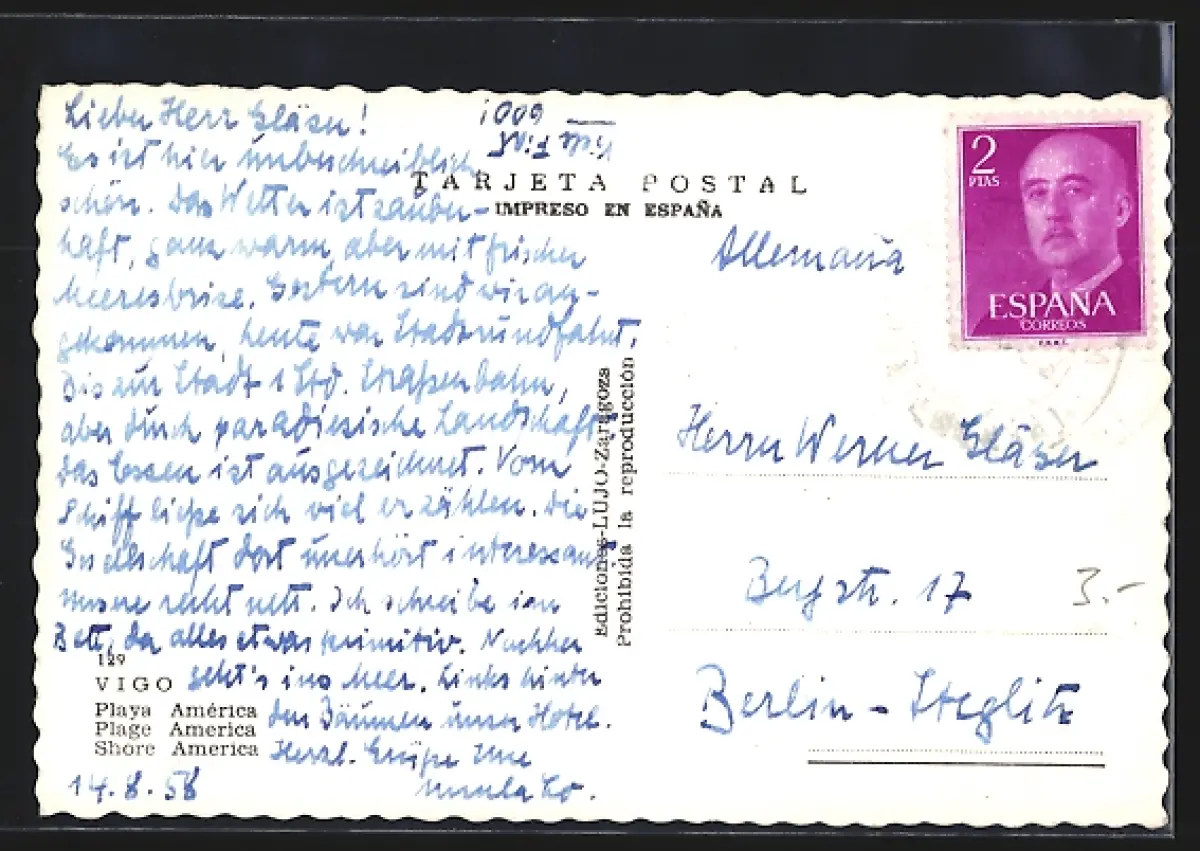 Lieber Herr Gläser!
Es ist hier unbeschreiblich
schön. Das Wetter ist zauber-
haft, ganz warm, aber mit frischer
Meeresbrise. Gestern sind wir an-
gekommen, heute war Stadtrundfahrt.
Bis zur Stadt 1 Std. Straßenbahn,
aber durch paradiesische Landschaft
das Essen ist ausgezeichnet. Vom
Schiff ließe sich viel erzählen. Die
Gesellschaft dort unerhört interessant
unsere recht nett. Ich schreibe im
Bett, da alles etwas primitiv. Nachher
geht's ins Meer. Links hinter
den Bäumen unser Hotel.
Herzl. Grüße Ihre
Ursula Lo.
14.8.58
129
VIGO
Playa América
Plage America
Shore America
TARJETA POSTAL
IMPRESO EN ESPAÑA
Ediciones-LUJO-Zaragoza
Prohibida la reproducción
2
PTAS
ESPAÑA
CORREOS
Allemania
Herrn Werner Gläser
Bergstr. 17
3.-
Berlin - Steglitz